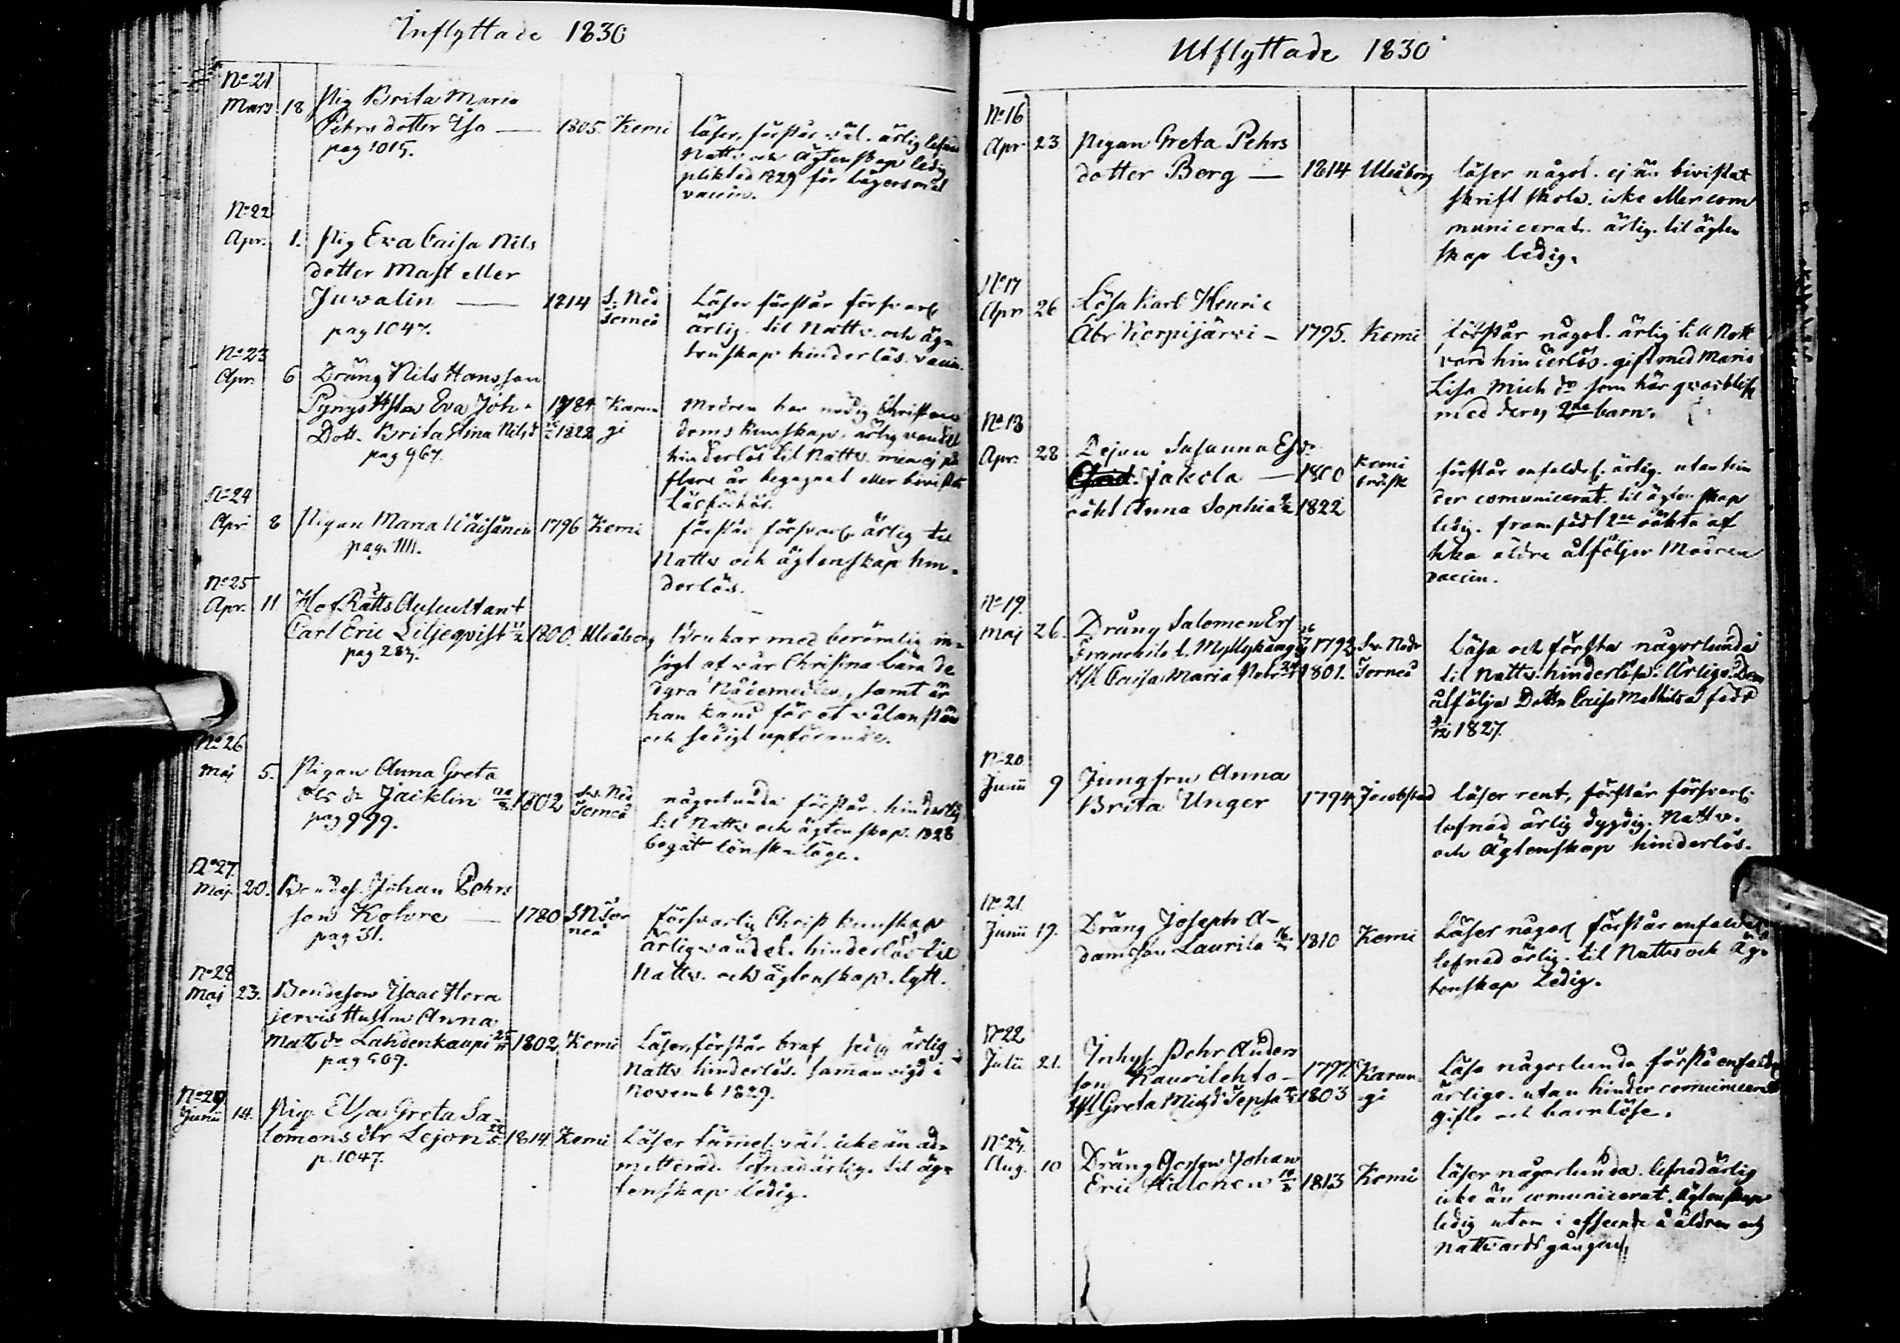 Inflyttade 1830
No 21
Mars 18 Pig Brita Maria
Pehrsdotter Iso — 1805. Kemi
pag 1015.
läser, förstår väl. ärlig
Nattv. och Ägtenskap ledig
pliktad 1829 för lägersmål
vaccin.
No 22
Apr. 1. Pig Eva Caisa Nils
dotter Mast eller
Juvalin — 1814 S. Ned
Torneå
pag 1047.
Läser förstår försvarl
ärlig. til Nattv. och äg-
tenskap hinderlös. vaccin.
No 23
Apr. 6 Dräng Nils Hansson
Hstru Eva Joh. 1784 Karun
Dott. Brita Stina Nilsd 1828 gi
pag 967.
Modren har nödig Christen
doms kunskap, ärlig vandel
hinderlös til Nattv. men ej på
flere år begagnat eller bivistat
Läsförhör.
No 24
Apr 8 Pigan Maria Väisänen 1796 Kemi
pag. 1111.
förstår försvarl. ärlig til
Nattv och ägtenskap hin-
derlös.
No 25
Apr. 11 HofRätts Auscultant
Carl Eric Liljeqvist 1800. Uleåborg
pag 283.
med berömlig in-
sigt af vår Christna lära de
dyra Nådemedlen, samt är
han känd för et välanstän
och sedigt uppförande.
No 26
Maj 5. Pigan Anna Greta
Ols dr Jaiklin 1802 Sv. Ned
Torneå
pag 999.
någorlunda förstår. hinderlös
til Nattv och ägtenskap. 1828
begåt lönskaläge.
No 27.
Maj 20. Bondes. Johan Pehrs
son Kohvre — 1780 S N Tor
neå
pag 31.
försvarlig Christ kunskap
ärlig vandel. hinderlös til
Nattv. och ägtenskap. lytt.
No 28
Maj 23. Bondeson Isaac Hera
jervis Hustru Anna
Matts dr Lahdenkaupi 1802 Kemi
pag 509.
Läser, förstår braf sedig ärlig
Nattv hinderlös. samanvigd i
Novemb 1829.
No 29
Junii 14. Pig. Elsa Greta Sa-
lomonsdtr Lejon 1814. Kemi
p. 1047.
Läser tämel. väl. icke än ad-
mitterad. lefnad ärlig. til äg-
tenskap ledig.
Utflyttade 1830
No 16
Apr 23 Pigan Greta Pehrs
dotter Berg — 1814 Uleåborg
läser något. ej än bivistat
skriftskola. icke eller com
municerat. ärlig. til ägten
skap ledig.
No 17
Apr 26 Lösa Karl Henric
Abr Korpijärvi — 1795. Kemi
förstår något. ärlig till Natt
vard hinderlös. gift med Maria
Lisa Mich dr som här qvarblifr
med deras 2ne barn.
No 18
Apr. 28 Pejan Susanna Es dr
Jakola — 1800 Kemi
träsk
oäkt Anna Sophia 1822
förstår enfaldl. ärlig. utan hin
der comunicerat. til ägtenskap
ledig. framfödt 2ne oäkta af
hka äldre åtföljer Modren
vaccin.
No 19.
Maj 26. Dräng Salomon Ers
Franchila l. Myllykangas 1792 Sv. Neder
H/h Caisa Maria 1801. Torneå
Läsa och förstå någorlunda
til Nattv. hinderlösa. ärliga. Dem
åtfölja Dottn Caisa Mathilda född
1827.
No 20
Junii 9 Jungfru Anna
Brita Unger 1794 Jacobstad
läser rent, förstår försvarl.
lefnad ärlig dygdig. Nattv.
och Ägtenskap hinderlös.
No 21
Junii 19. Dräng Joseph A-
damsson Laurila 1810 Kemi
Läser något förstår enfaldel.
lefnad ärlig. til Nattv och äg-
tenskap Ledig.
No 22
Julii 21. Inhys Pehr Anders
son Kaurilehto — 1797. Karun-
Greta Mich d Sepha 1803 gi
Läsa någorlunda förstå enfald
ärlige. utan hinder comunicerat
gifte och barnlöse.
No 23.
Aug. 10 Dräng Gossen Johan
Eric Halonen 1813 Kemi
läser någorlunda. lefnad ärlig
icke än comunicerat. Ägtenskap
ledig utom i afseende å åldren och
Nattvardsgången.